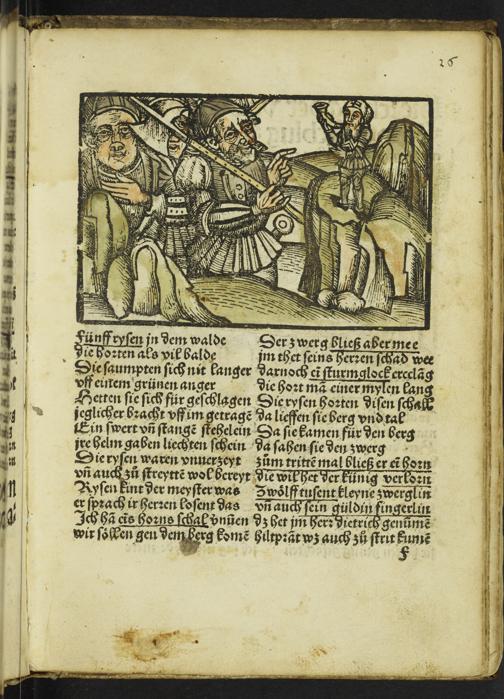 26
Fünff rysen jn dem walde
die horten als vil balde
Sie saumpten sich nit langer
vff einem grünen anger
Hetten sie sich für geschlagen
jeglicher bracht vff im getragē
Ein swert vñ stangē stehelein
jre helm gaben liechten schein
Die rysen waren vnuerzeyt
vñ auch zů streytte wol bereyt
Rysen kint der meyster was
er sprach ir herren losent das
Ich hā eis horns schal vnūen
wir söllen gen dem berg komē
Der zwerg bließ aber mee
jm thet seins herren schad wee
darnoch ei sturmglock ercklāg
die hort mā einer mylen lang
Die rysen horten disen schall
da lieffen sie berg vnd tal
Da sie kamen für den berg
da sahen sie den zwerg
zům trittē mal bließ er ei horn
die wil het der künig verlorn
Zwölff tusent kleyne zwerglin
vñ auch sein güldin fingerlin
dz het jm herr dietrich genūmē
hiltprāt wz auch zů strit kumē
f